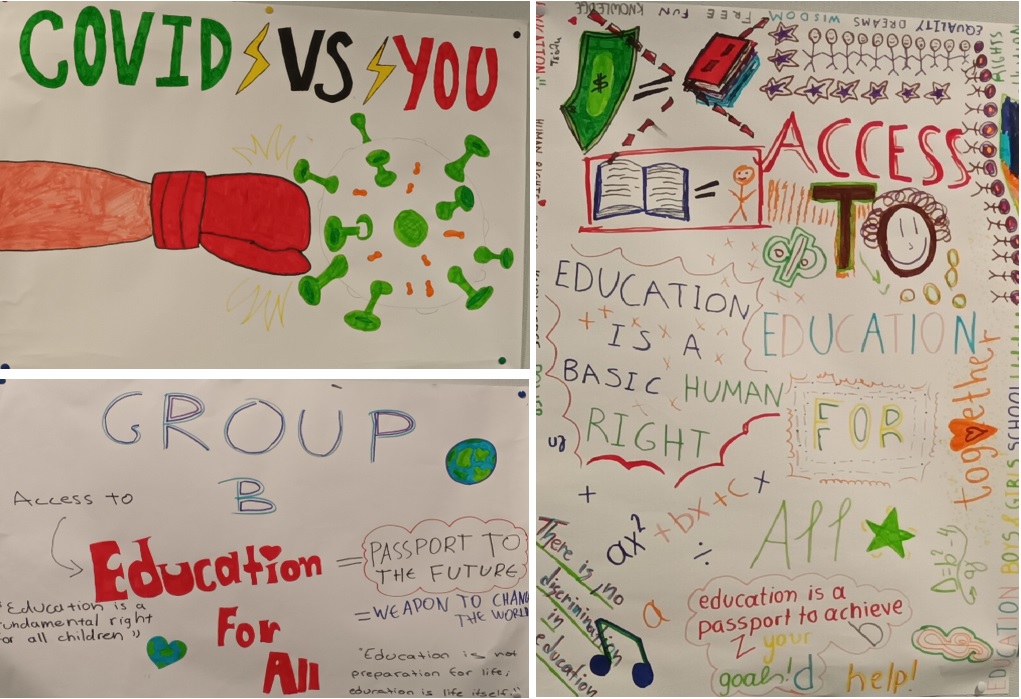 COVID VS YOU
GROUP
B
Access to
Education
For
All
= PASSPORT TO
THE FUTURE
= WEAPON TO
THE
"Education is a
fundamental right
for all children"
"Education is not
preparation for life;
education is life itself."
KNOWLEDGE
EQUALITY DREAMS WISDOM FREE FUN
RIGHTS
$
=
=
ACCESS
TO
EDUCATION
FOR
All
EDUCATION
IS A
BASIC HUMAN
RIGHT
together
+
ax² + bx + c x
÷
There is no
discrimination
in
education
a
education is a
passport to achieve
z your b
goals! d
help!
EDUCATION BOYS & GIRLS SCHOOL